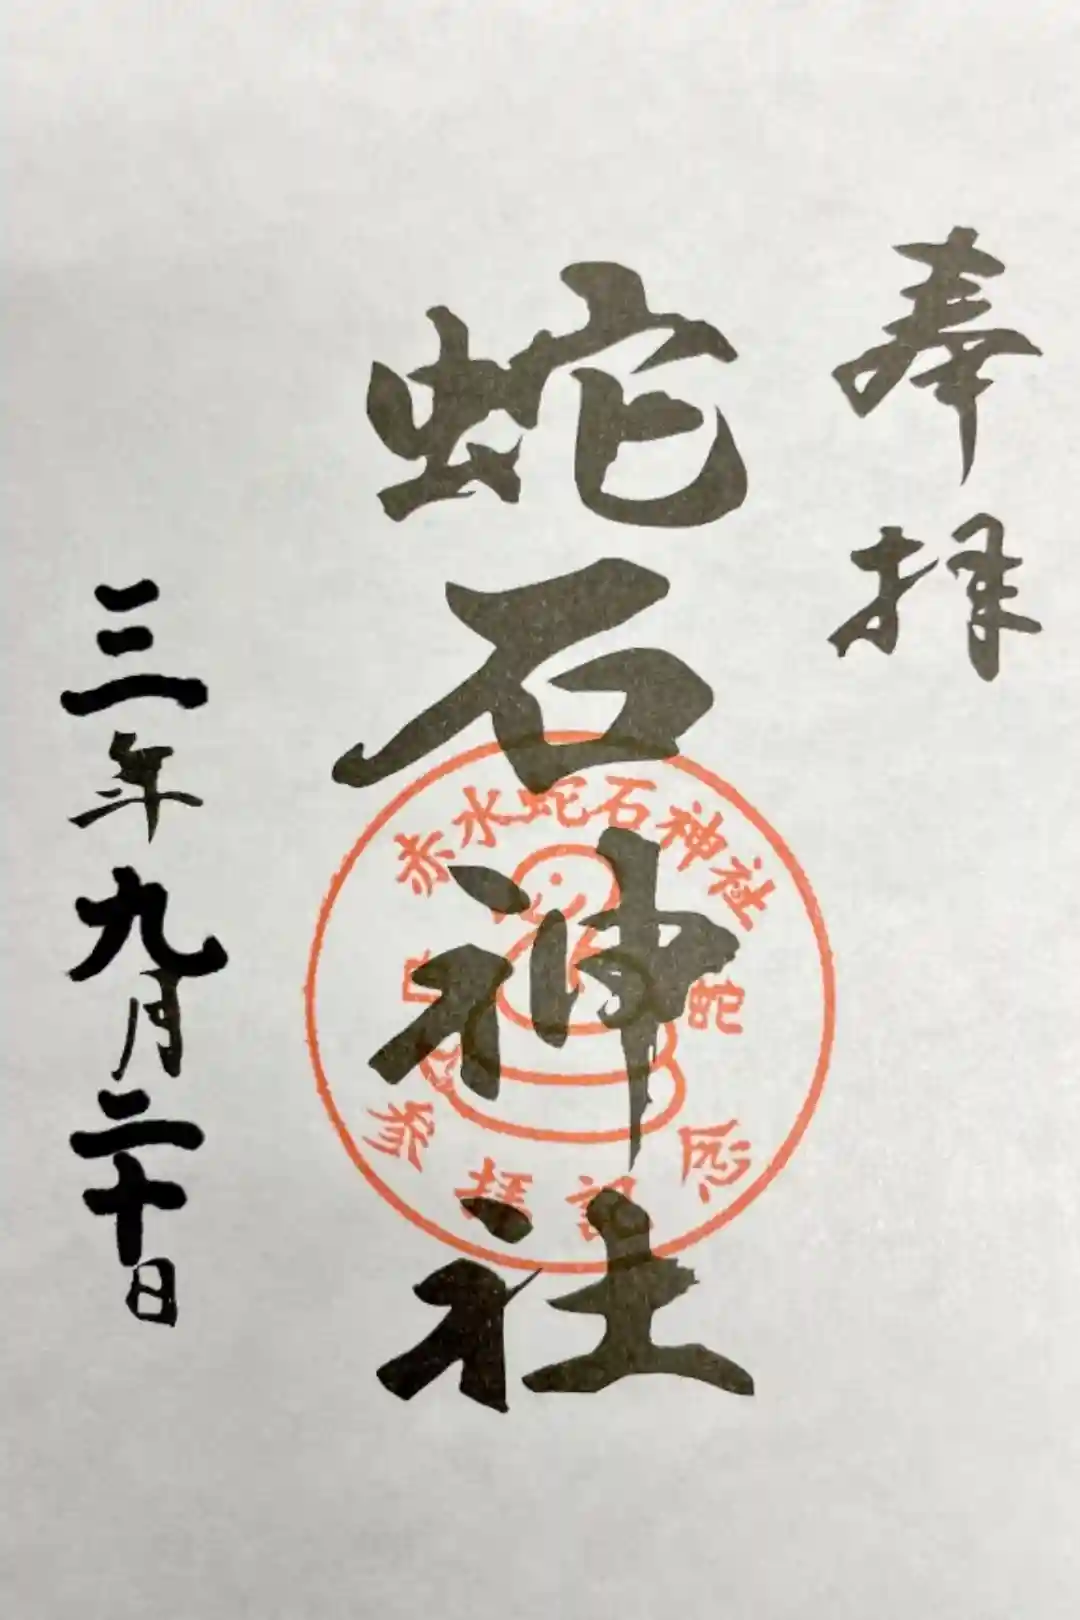 奉拝
蛇石神社
赤水蛇石神社
蛇
参拝記念
三年九月二十日